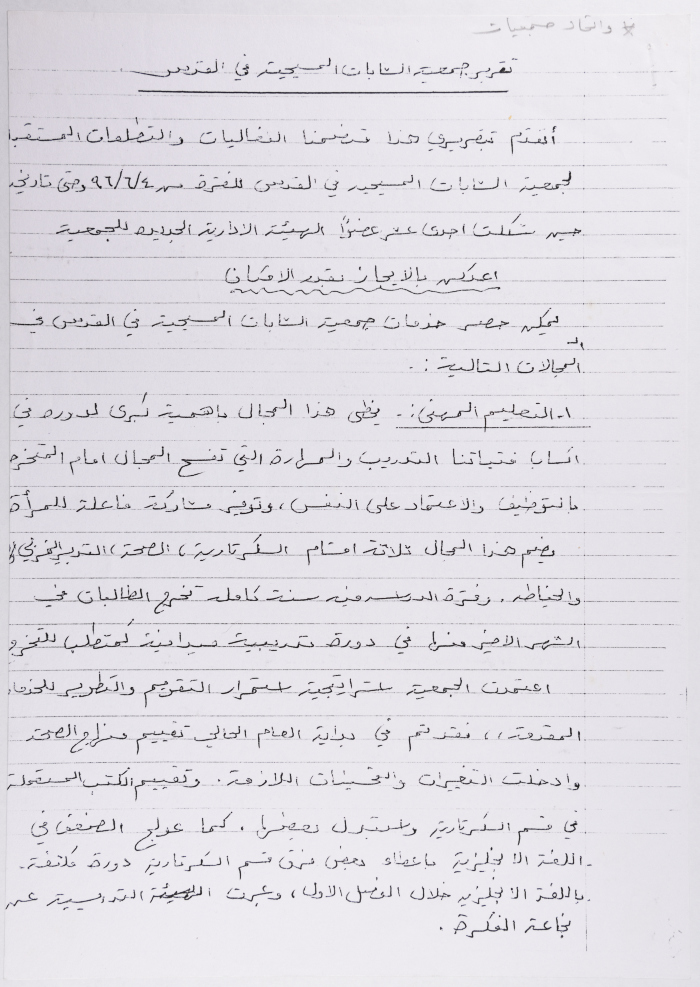 واتحاد جمعيات
تقرير جمعية الشابات المسيحية في القدس
أتقدم بتقريري هذا متضمنا الفعاليات والتطلعات المستقبل
لجمعية الشابات المسيحية في القدس للفترة من ٩٦/٦/٤ وحتى تاريخه
حين شكلت احدى عشر عضوًا الهيئة الادارية الجديدة للجمعية
بالايجاز بقدر الامكان
يمكن حصر خدمات جمعية الشابات المسيحية في القدس في
المجالات التالية :-
١- التعليم المهني :- يحظى هذا المجال باهمية كبرى لدوره في
اكساب فتياتنا التدريب والمهارة التي تفسح المجال امام المتخرج
بالتوظيف والاعتماد على النفس ، وتوفير مشاركة فاعلة للمرأة
يضم هذا المجال ثلاثة اقسام السكرتارية ، الصحة ، التدبير المنزلي
والخياطه . وفترة الدراسه فيه سنة كامله تخرج الطالبات في
الشهر الاخير منها في دورة تدريبية ميدانية كمتطلب للتخرج
اعتمدت الجمعية استراتيجية استمرار التقويم والتطوير للخدمات
المقدمة ،، فقد تم في بداية العام الحالي تقييم منهاج الصحة
وادخلت التغيرات والتحسينات اللازمة . وتقييم الكتب المستعملة
في قسم السكرتارية واستبدل بعضها . كما عولج الضعف في
اللغة الانجليزية باعطاء بعض فرق قسم السكرتارية دورة مكثفة
باللغة الانجليزيه خلال الفصل الاول ، وعبرت الهيئة التدريسية عن
نجاعة الفكرة .